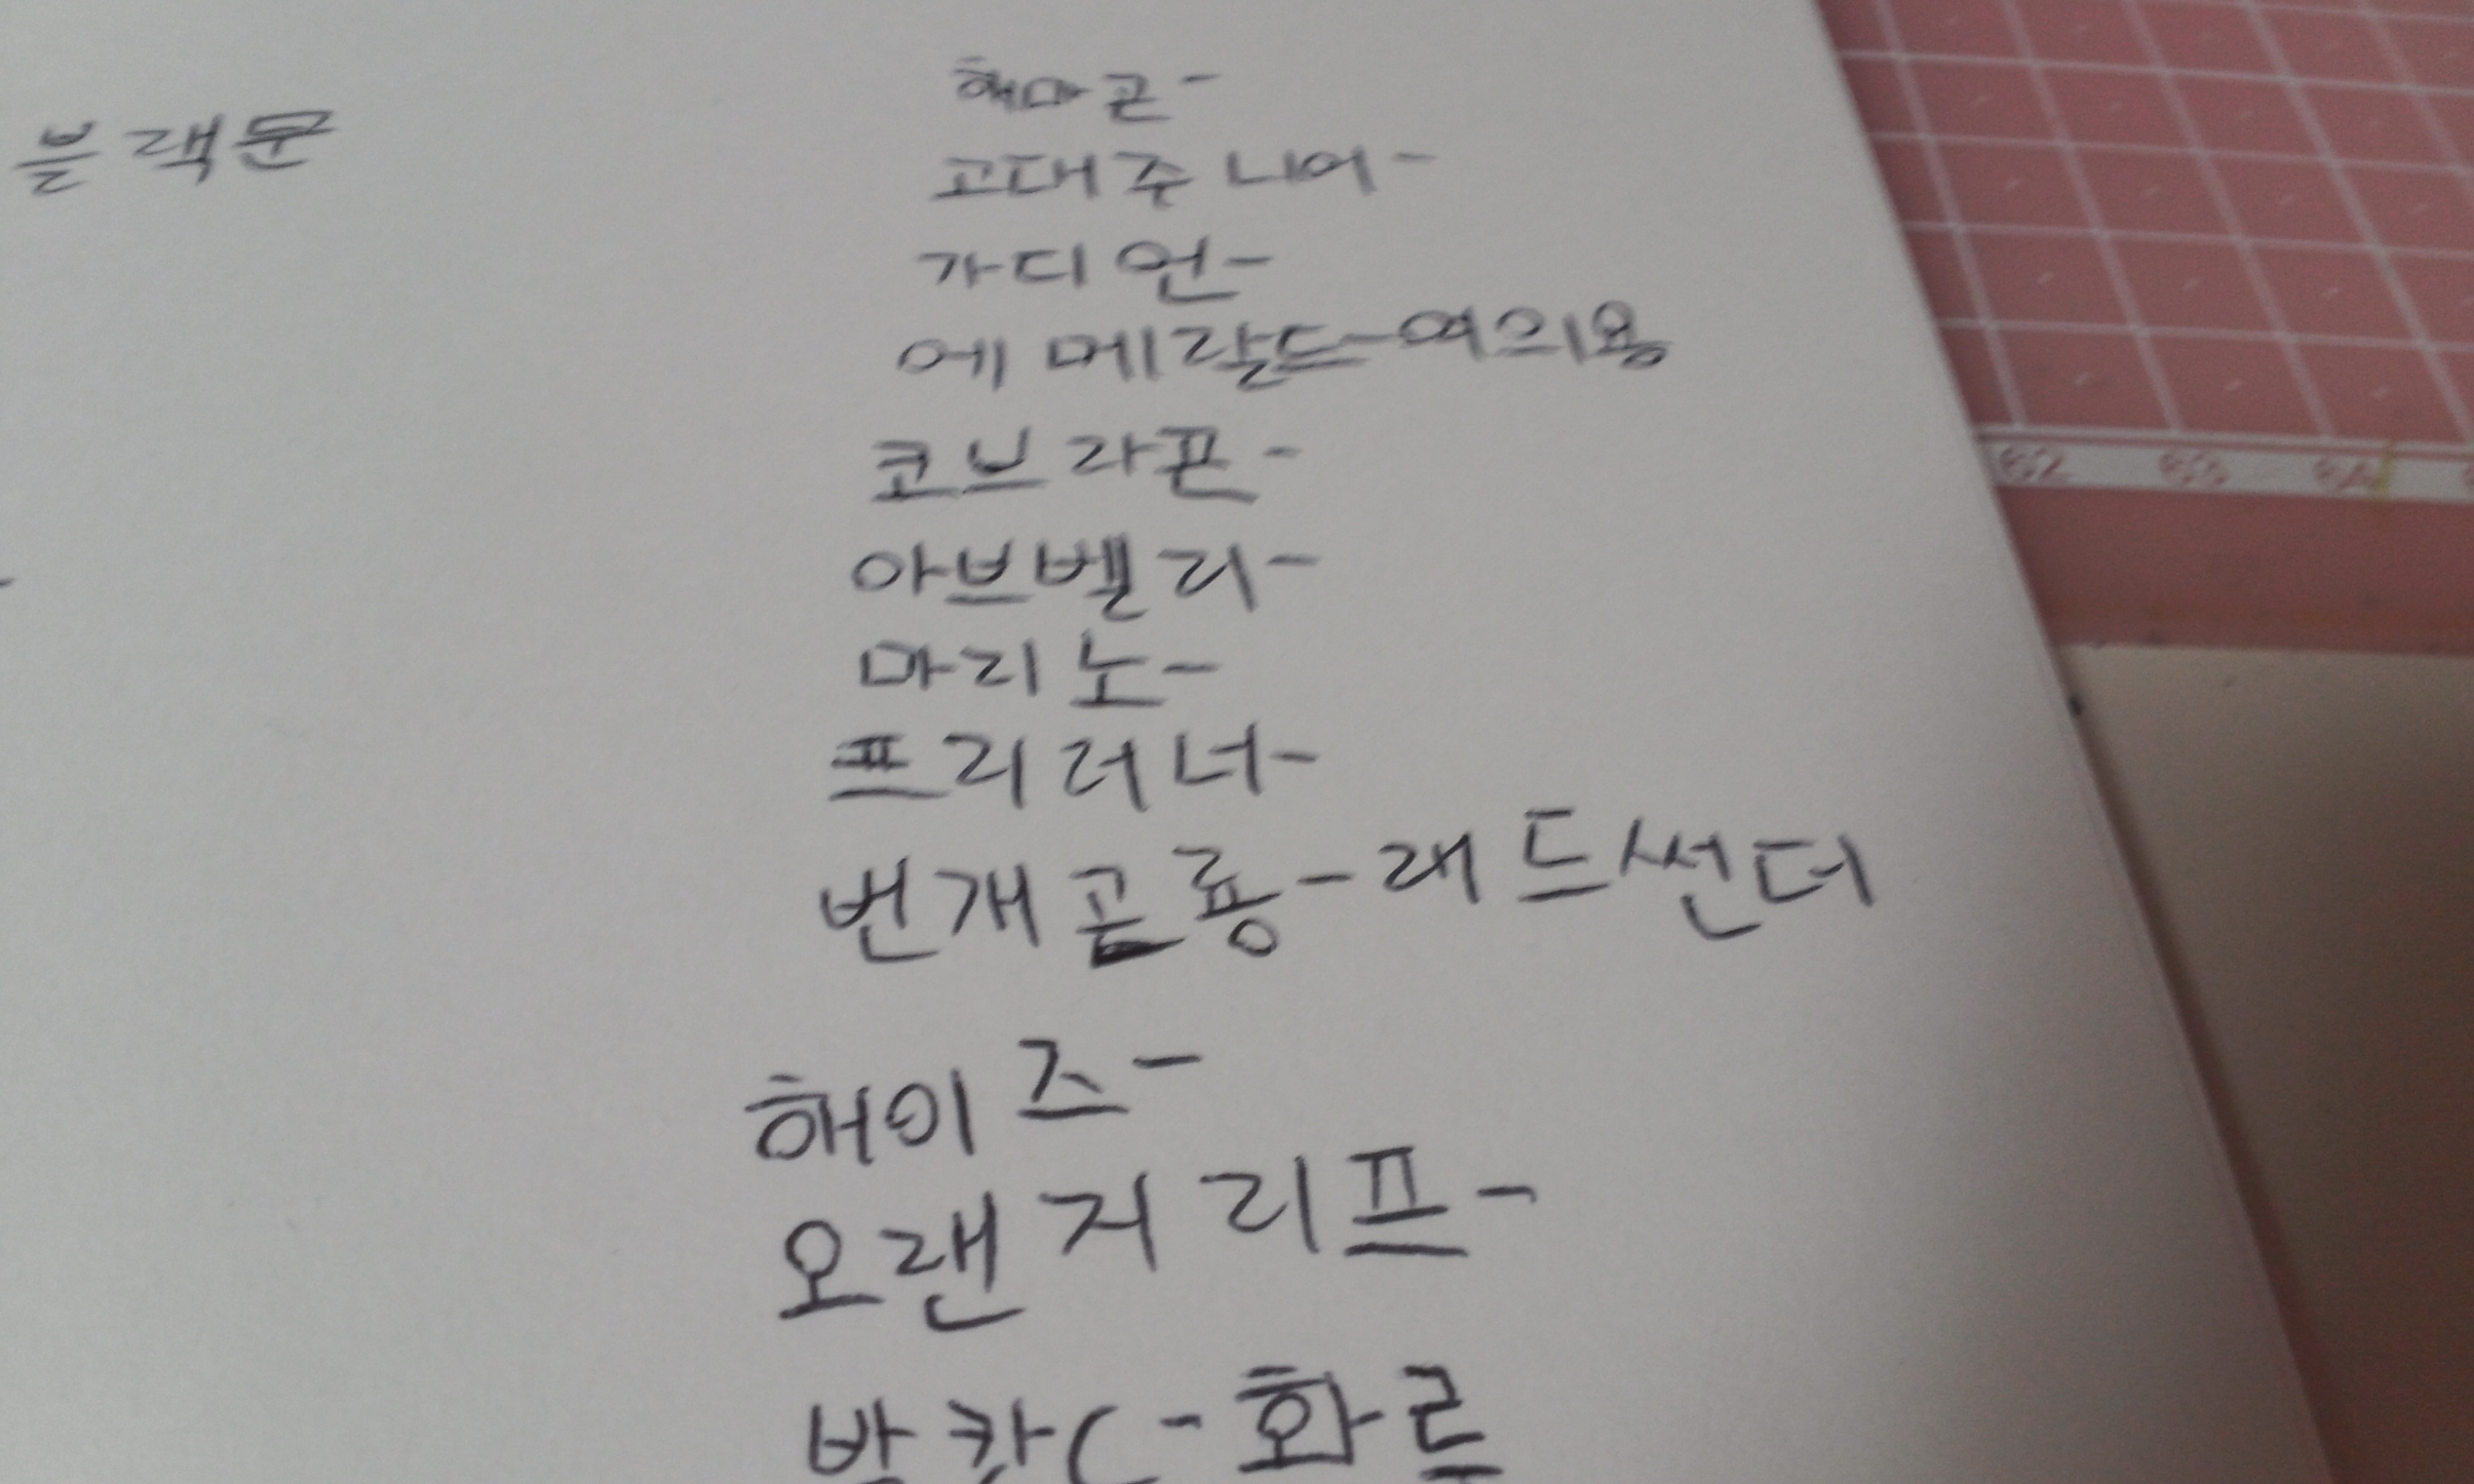 블랙문
해마곤-
고대주니어-
가디언-
에메랄드-여의용
코브라곤-
아브벨리-
마리노-
프리러너-
번개곤룡-래드썬더
해이즈-
오랜지리프-
발칸(-화르
62 63 64